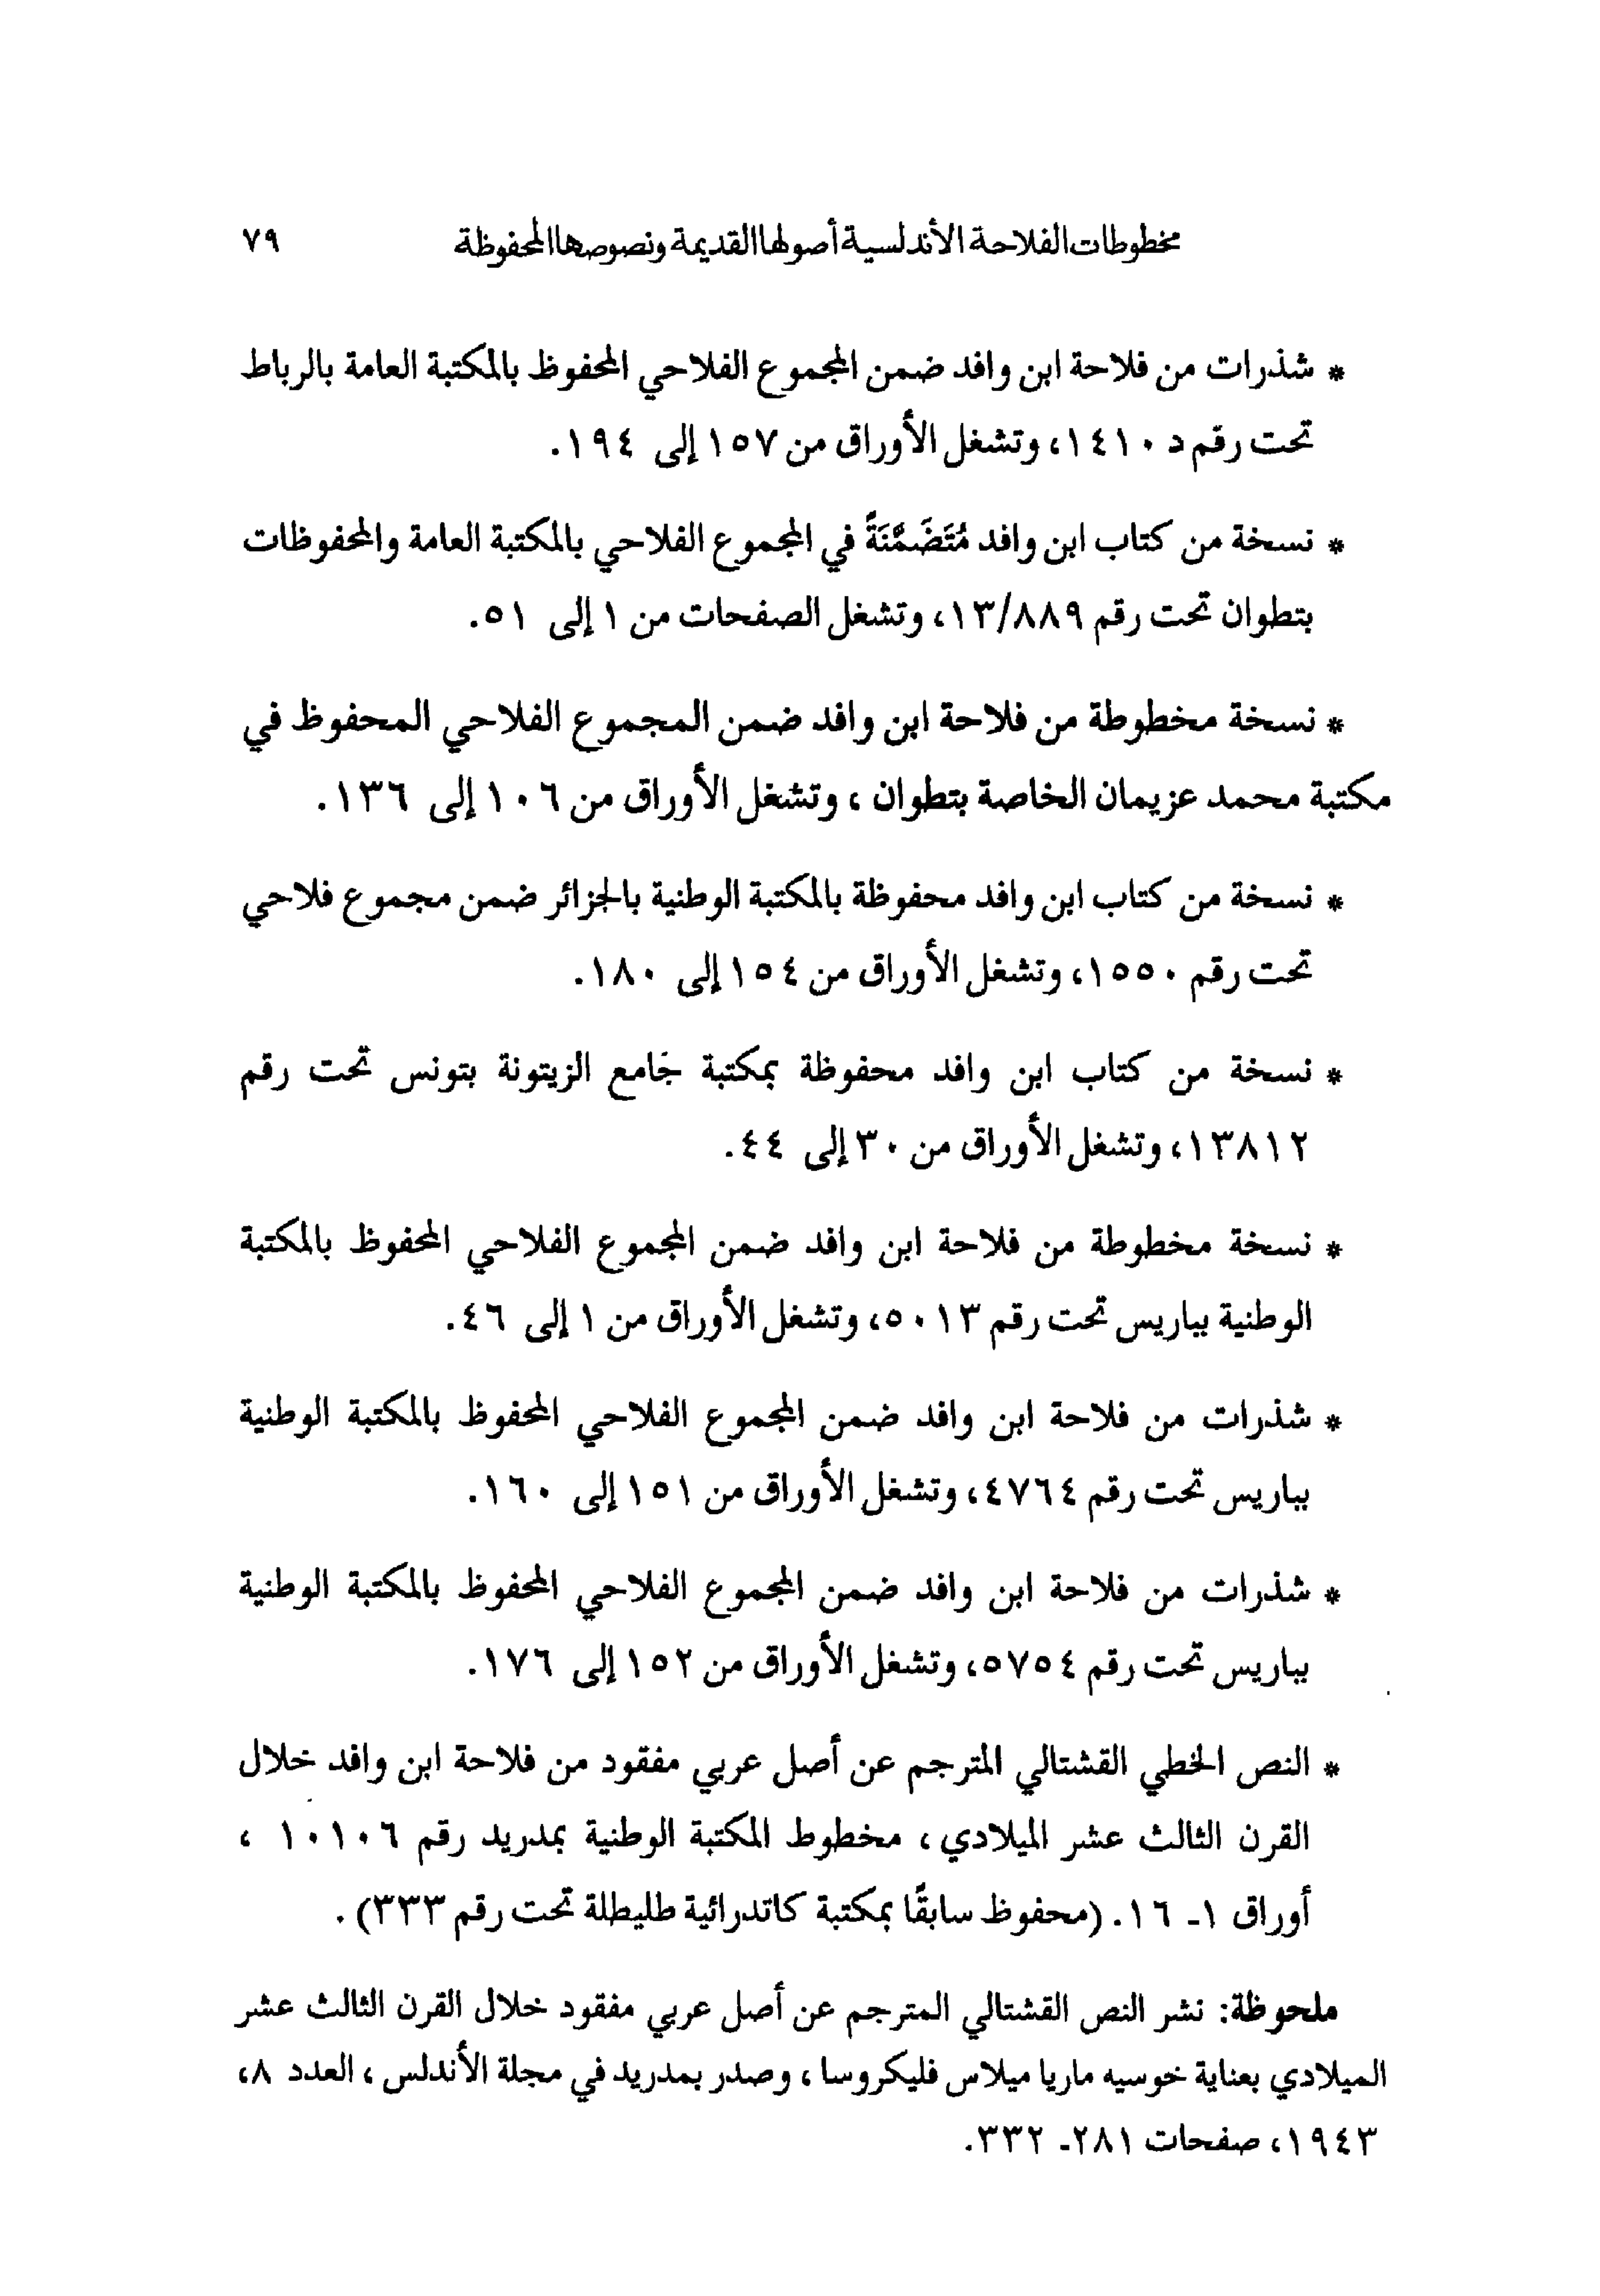 مخطوطات الفلاحة الأندلسية أصولها القديمة ونصوصها المحفوظة ٧٩
* شذرات من فلاحة ابن وافد ضمن المجموع الفلاحي المحفوظ بالمكتبة العامة بالرباط
تحت رقم د ١٤١٠، وتشغل الأوراق من ١٥٧ إلى ١٩٤.
* نسخة من كتاب ابن وافد مُتَضَمَّنَةً في المجموع الفلاحي بالمكتبة العامة والمحفوظات
بتطوان تحت رقم ١٣/٨٨٩، وتشغل الصفحات من ١ إلى ٥١.
* نسخة مخطوطة من فلاحة ابن وافد ضمن المجموع الفلاحي المحفوظ في
مكتبة محمد عزيمان الخاصة بتطوان ، وتشغل الأوراق من ١٠٦ إلى ١٣٦.
* نسخة من كتاب ابن وافد محفوظة بالمكتبة الوطنية بالجزائر ضمن مجموع فلاحي
تحت رقم ١٥٥٠، وتشغل الأوراق من ١٥٤ إلى ١٨٠.
* نسخة من كتاب ابن وافد محفوظة بمكتبة جَامع الزيتونة بتونس تحت رقم
١٣٨١٢، وتشغل الأوراق من ٣٠ إلى ٤٤.
* نسخة مخطوطة من فلاحة ابن وافد ضمن المجموع الفلاحي المحفوظ بالمكتبة
الوطنية بباريس تحت رقم ٥٠١٣، وتشغل الأوراق من ١ إلى ٤٦.
* شذرات من فلاحة ابن وافد ضمن المجموع الفلاحي المحفوظ بالمكتبة الوطنية
بباريس تحت رقم ٤٧٦٤، وتشغل الأوراق من ١٥١ إلى ١٦٠.
* شذرات من فلاحة ابن وافد ضمن المجموع الفلاحي المحفوظ بالمكتبة الوطنية
بباريس تحت رقم ٥٧٥٤، وتشغل الأوراق من ١٥٢ إلى ١٧٦.
* النص الخطي القشتالي المترجم عن أصل عربي مفقود من فلاحة ابن وافد خلال
القرن الثالث عشر الميلادي ، مخطوط المكتبة الوطنية بمدريد رقم ١٠١٠٦ ،
أوراق ١- ١٦. (محفوظ سابقًا بمكتبة كاتدرائية طليطلة تحت رقم ٣٣٣) .
ملحوظة: نشر النص القشتالي المترجم عن أصل عربي مفقود خلال القرن الثالث عشر
الميلادي بعناية خوسيه ماريا ميلاس فليكروسا ، وصدر بمدريد في مجلة الأندلس ، العدد ٨،
١٩٤٣، صفحات ٢٨١- ٣٣٢.